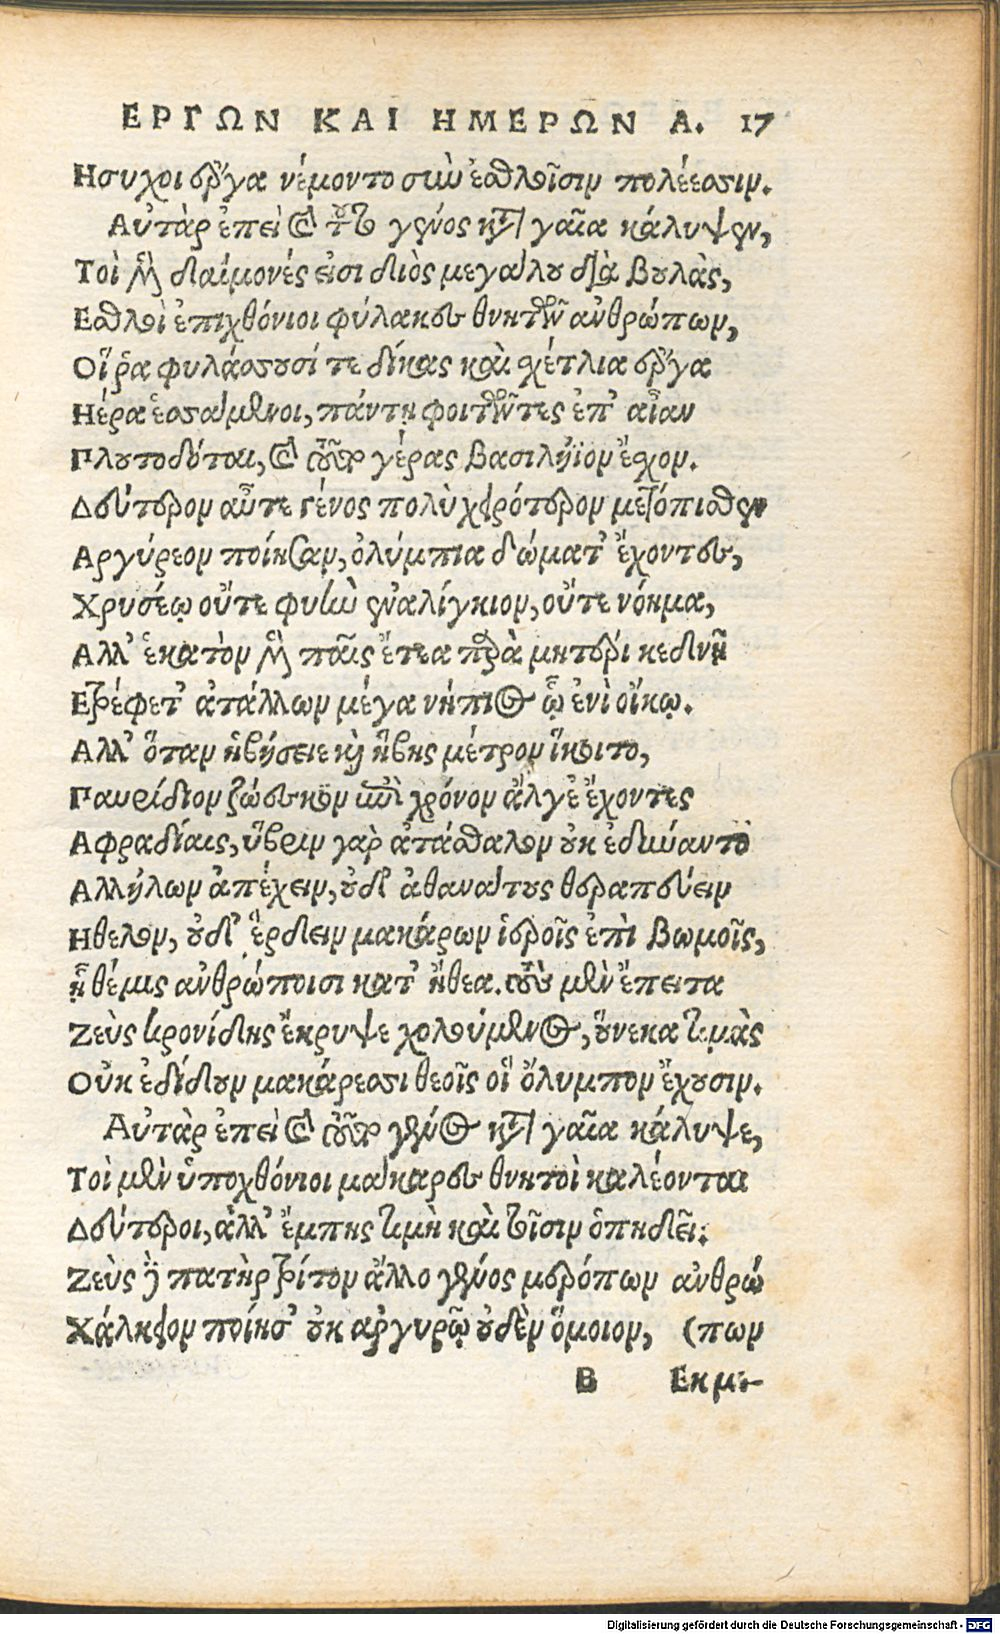 ΕΡΓΩΝ ΚΑΙ ΗΜΕΡΩΝ Α. 17
Ησυχοι ἔργα νέμοντο σὺν ἐσθλοῖσιν πολέεσσιν.
Αὐτὰρ ἐπεὶ καὶ τοῦτο γένος κατὰ γαῖα κάλυψεν,
Τοὶ μὲν δαίμονές εἰσι διὸς μεγάλου διὰ βουλὰς,
Εσθλοὶ ἐπιχθόνιοι φύλακες θνητῶν ἀνθρώπων,
Οἵ ῥα φυλάσσουσί τε δίκας καὶ σχέτλια ἔργα
Ηέρα ἑσσάμενοι, πάντῃ φοιτῶντες ἐπ' αἶαν
Πλουτοδόται, καὶ τοῦτο γέρας βασιλήϊον ἔσχον.
Δεύτερον αὖτε γένος πολὺ χειρότερον μετόπισθεν
Αργύρεον ποίησαν, ὀλύμπια δώματ' ἔχοντες,
Χρυσέῳ οὔτε φυὴν ἐναλίγκιον, οὔτε νόημα,
Αλλ' ἑκατὸν μὲν παῖς ἔτεα παρὰ μητέρι κεδνῇ
Ετρέφετ' ἀτάλλων μέγα νήπιος ᾧ ἐνὶ οἴκῳ.
Αλλ' ὅταν ἡβήσειε καὶ ἥβης μέτρον ἵκοιτο,
Παυρίδιον ζώεσκον ἐπὶ χρόνον ἄλγε' ἔχοντες
Αφραδίαις, ὕβριν γὰρ ἀτάσθαλον οὐκ ἐδύναντο
Αλλήλων ἀπέχειν, οὐδ' ἀθανάτους θεραπεύειν
Ηθελον, οὐδ' ἔρδειν μακάρων ἱεροῖς ἐπὶ βωμοῖς,
ᾗ θέμις ἀνθρώποισι κατ' ἤθεα. τοὺς μὲν ἔπειτα
Ζεὺς κρονίδης ἔκρυψε χολούμενος, οὕνεκα τιμὰς
Οὐκ ἐδίδουν μακάρεσσι θεοῖς οἳ ὄλυμπον ἔχουσιν.
Αὐτὰρ ἐπεὶ καὶ τοῦτο γένος κατὰ γαῖα κάλυψε,
Τοὶ μὲν ὑποχθόνιοι μάκαρες θνητοὶ καλέονται
Δεύτεροι, ἀλλ' ἔμπης τιμὴ καὶ τοῖσιν ὀπηδεῖ.
Ζεὺς δὲ πατὴρ τρίτον ἄλλο γένος μερόπων ἀνθρώ
Χάλκειον ποίησ' οὐκ ἀργυρῷ οὐδὲν ὅμοιον, (πων
Β Εκ με-
Digitalisierung gefördert durch die Deutsche Forschungsgemeinschaft - DFG